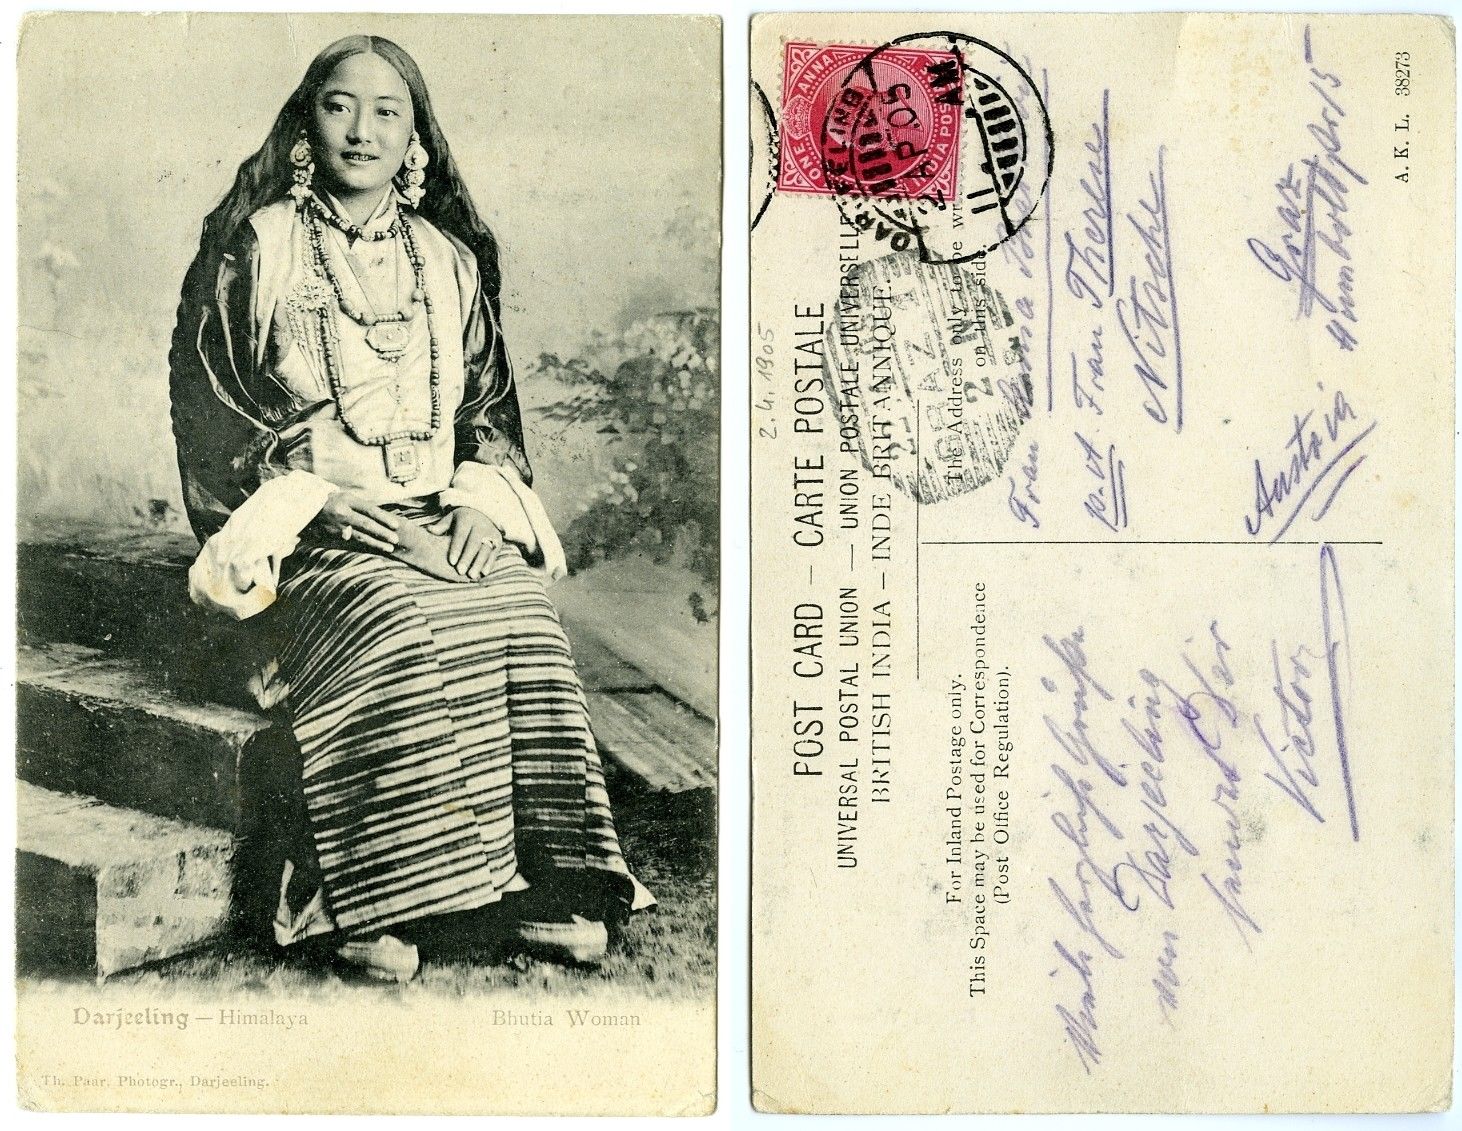 Darjeeling — Himalaya
Bhutia Woman
Th. Paar. Photogr., Darjeeling.
ONE ANNA
INDIA POSTAGE
DARJEELING
2 AP. 05
11 AM
GRAZ
2.4.1905
POST CARD — CARTE POSTALE
UNIVERSAL POSTAL UNION — UNION POSTALE UNIVERSELLE
BRITISH INDIA — INDE BRITANNIQUE.
The Address only to be
on this side.
For Inland Postage only.
This Space may be used for Correspondence
(Post Office Regulation).
Frau Anna
p. A. Frau Therese
Nitsche
Graz
Humboldtstr 15
Austria
von Darjeeling
sendet Dir
Victor
A. K. L. 38273